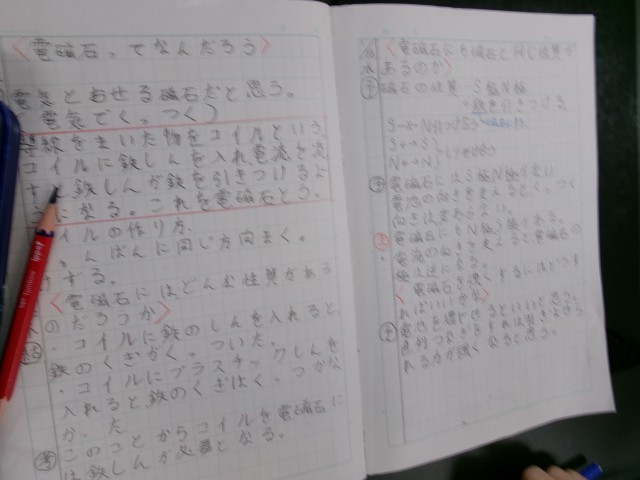 〈電磁石ってなんだろう〉
電気とおせる磁石だと思う。
電気でくっつく)
導線をまいた物をコイルという。
コイルに鉄しんを入れ電流を流
すと鉄しんが鉄を引きつけるよ
うになる。これを電磁石とよう。
コイルの作り方
じゅんばんに同じ方向まく。
する。
〈電磁石にはどんな性質がある
のだろうか〉
コイルに鉄のしんを入れると
鉄のくぎがくっついた。
・コイルにプラスチックしんを
入れると鉄のくぎはくっつかな
かった
このことからコイルを電磁石に
は鉄しんが必要となる。
〈電磁石にも磁石と同じ性質が
あるのか〉
磁石の性質 S極N極
鉄を引きつける
S→←N引きつけあう
S←→S
N←→N しりぞけあう
電磁石にはS極N極がない
電池の向きを変えるとくっつく
向きは変わらない。
電磁石にもN極S極がある。
電流の向きを変えると電磁石の
極は逆になる。
〈電磁石を強くするにはどうす
ればいいかな〉
電池を増にするといいと思う。
直列つなぎをすれば鉄を引きつけ
れる力が強くなると思う。